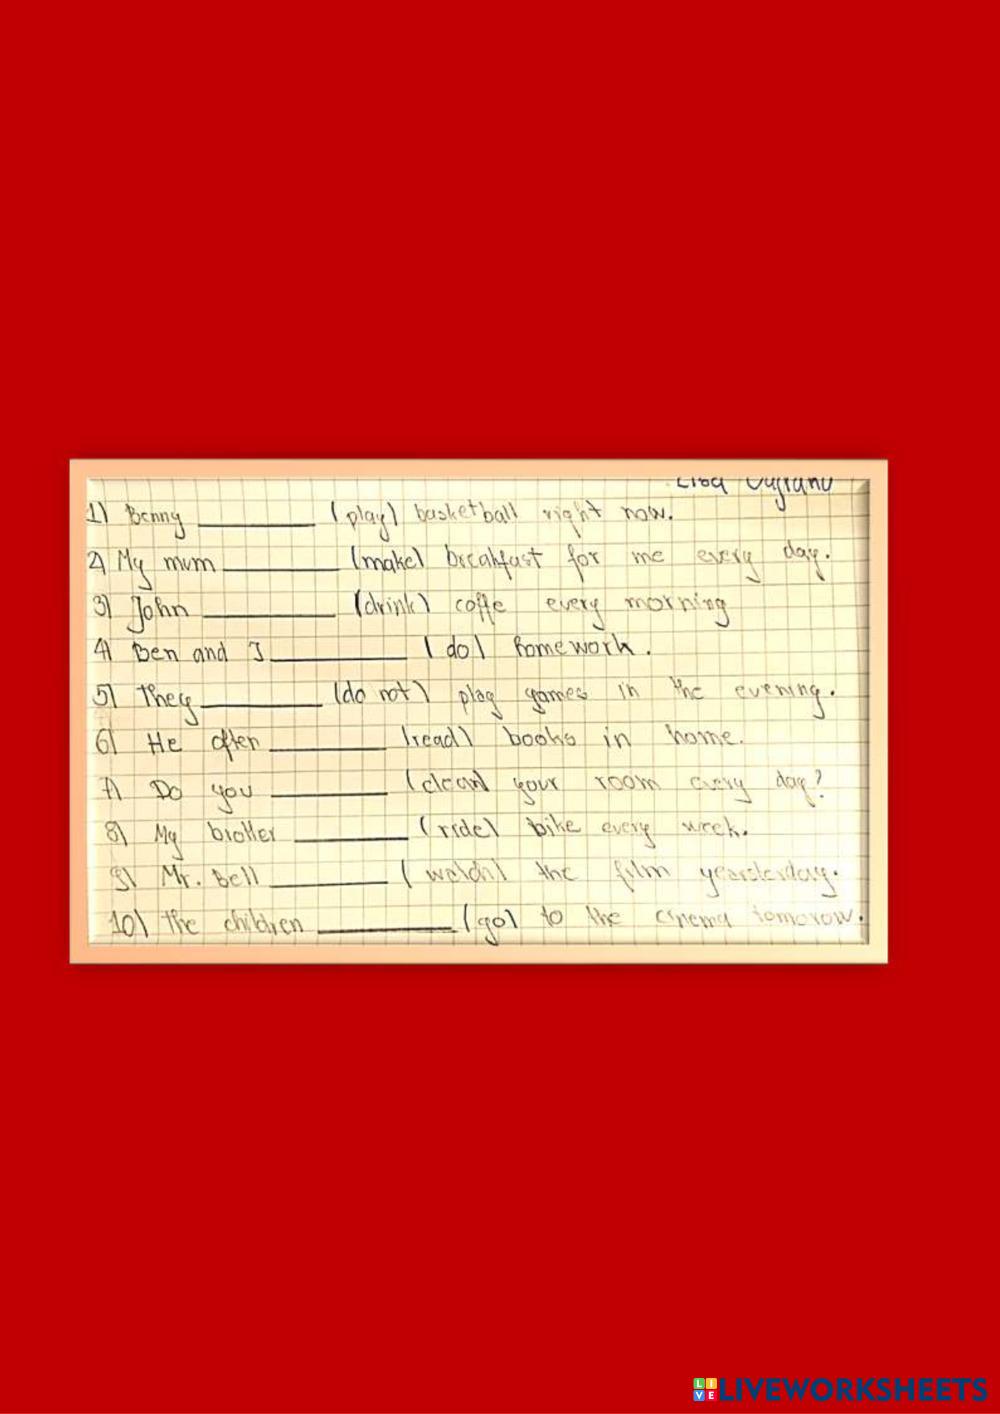 1) Benny __________ (play) basketball right now.
2) My mum __________ (make) breakfast for me every day.
3) John __________ (drink) coffe every morning
4) Ben and I __________ (do) homework.
5) They __________ (do not) play games in the evening.
6) He often __________ (read) books in home.
7) Do you __________ (clean) your room every day?
8) My brother __________ (ride) bike every week.
9) Mr. Bell __________ the film yearsterday.
10) The children __________ (go) to the cinema tomorow.
LIVE LIVEWORKSHEETS